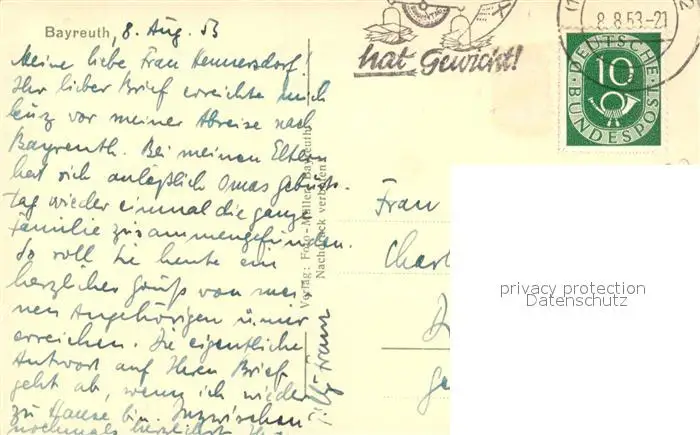 Bayreuth, 8. Aug. 53
Meine liebe Frau Hennersdorf!
Ihr lieber Brief erreichte mich
kurz vor meiner Abreise nach
Bayreuth. Bei meinen Eltern
hat sich anläßlich Omas Geburts-
tag wieder einmal die ganze
Familie zusammengefunden.
So soll Sie heute ein
herzlicher Gruß von mei-
nen Angehörigen u. mir
erreichen. Die eigentliche
Antwort auf Ihren Brief
geht ab, wenn ich wieder
zu Hause bin. Inzwischen
nochmals herzlichst Ihr
Verlag: Foto-Müller, Bayreuth
Nachdruck verboten
hat Gewicht!
8.8.53-21
DEUTSCHE
10
BUNDESPOST
Frau
Charl
privacy protection
Datenschutz